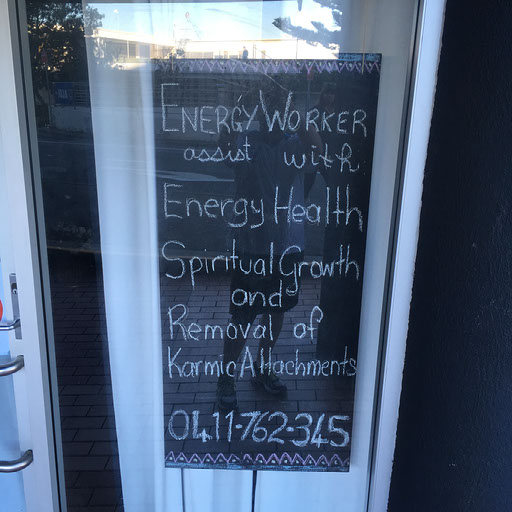 ENERGY WORKER
assist with
Energy Health
Spiritual Growth
and
Removal of
Karmic Attachments
0411-762-345